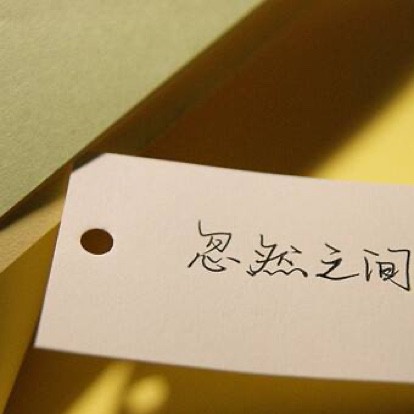 忽然之间